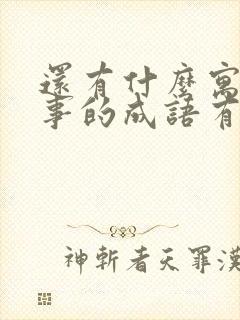 還有什麼寓
事的成語有
神斬者天罪漢